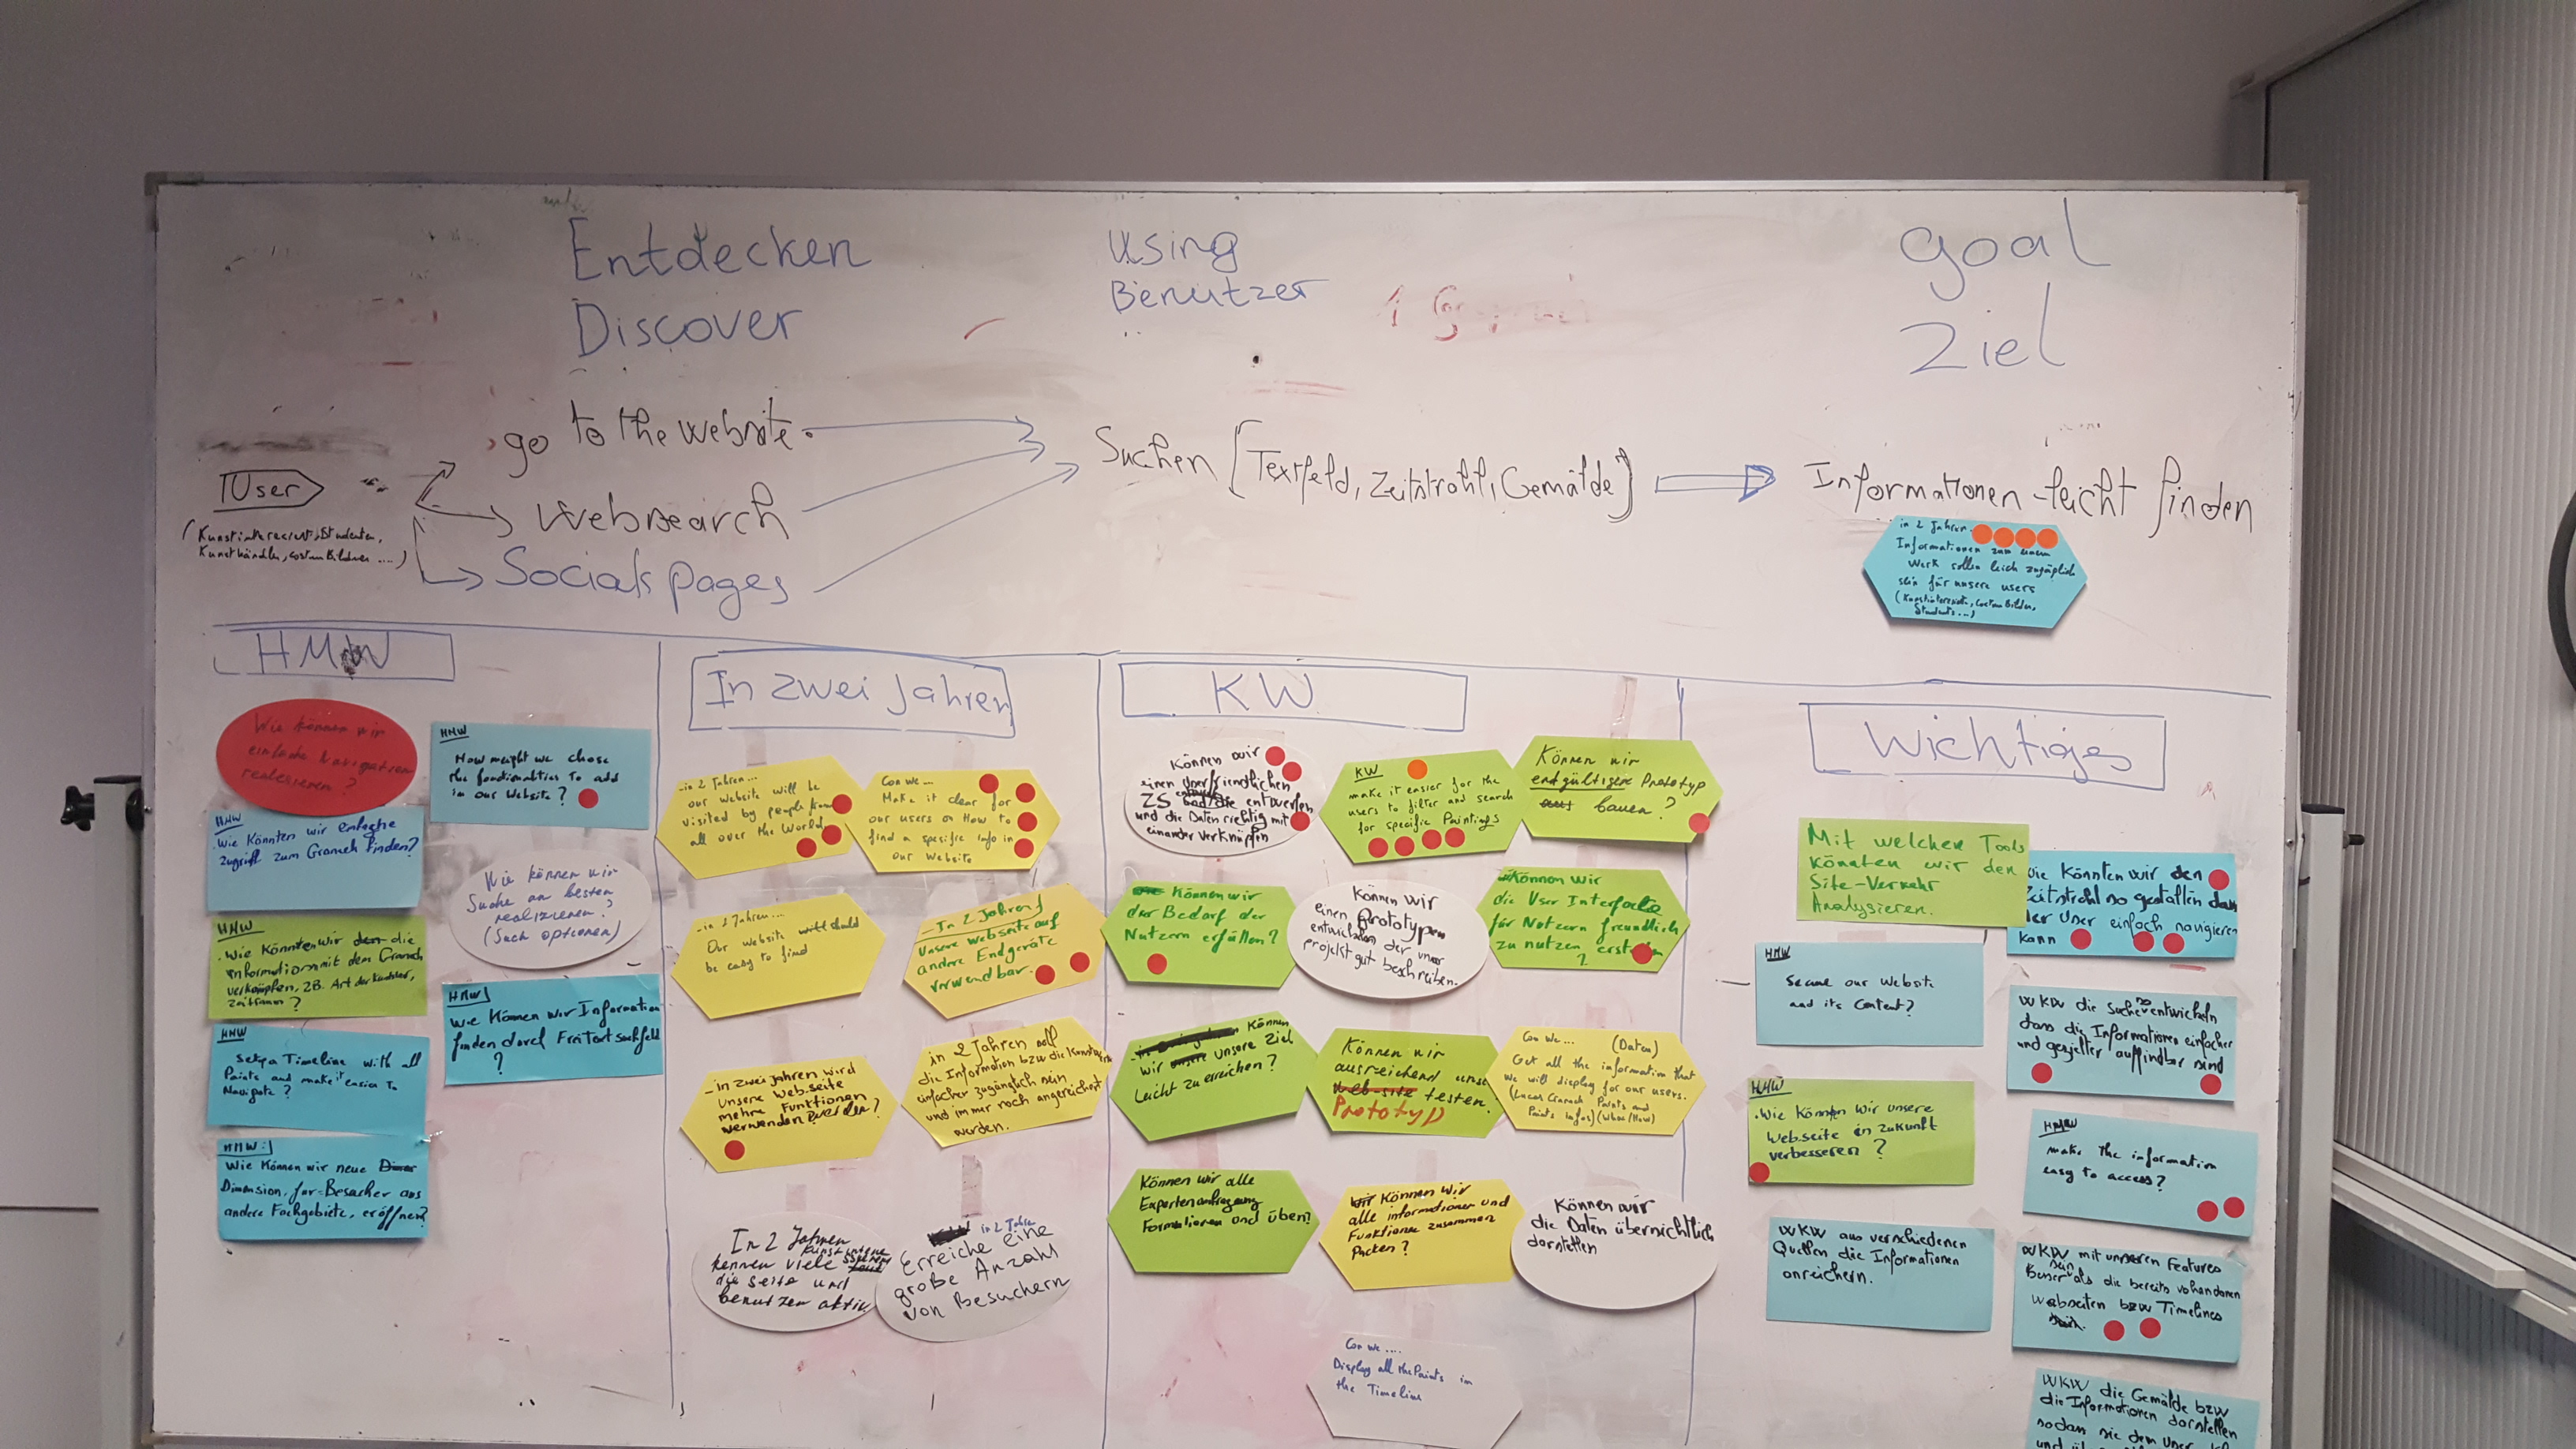 Entdecken
Discover
Using
Benutzer
goal
Ziel
User
go to the website.
Websearch
Socials pages
Suchen [Textfeld, Zeitstrahl, Gemälde]
Informationen leicht finden
in 2 Jahren
Informationen zum einem
Werk sollen leich
sein für unsere users
HMW
Wie können wir
einfache Navigation
realesieren?
HMW
How meight we chose
the fonctionalities to add
in our Website?
HMW
Wie Könnten wir einfache
zugriff zum Cranach finden?
Wie können wir
Suche am besten
realizieren?
(Such optionen)
HMW
Wie Könnten wir die
Informationen mit dem Cranach
verknüpfen, ZB. Art der Künstler,
Zeitraum?
HMW
Wie Können wir Information
finden durch FreiText suchfeld
?
HMW
setup a Timeline with all
Paints and make it easier to
Navigate?
HMW:
Wie Können wir neue
Dimension, für Besucher aus
andere Fachgebiete, eröffnen?
In zwei Jahren
-in 2 Jahren...
our website will be
visited by people from
all over the World
Can we...
Make it clear for
our users on How to
find a spesific info in
our Website
-in 2 Jahren...
Our website should
be easy to find
-In 2 Jahren
Unsere Webseite auf
andere Endgeräte
verwendbar.
-in zwei Jahren wird
unsere Webseite
mehre Funktionen
verwenden
in 2 Jahren soll
die Information bzw die Kunstwerke
einfacher zugänglich sein
und immer noch angereichert
werden.
In 2 Jahren
kennen viele
die Seite und
benutzen aktiv
in 2 Jahren
Erreiche eine
große Anzahl
von Besuchern
KW
Können wir
einen Userfriendlichen
ZS entwerfen
und die Daten richtig mit
einander verknüpfen
KW
make it easier for the
users to filter and search
for specific Paintings
Können wir
endgültigere Prototyp
bauen?
Können wir
der Bedarf der
Nutzern erfüllen?
Können wir
einen Prototypen
entwickeln der unser
projekt gut beschreiben.
Können wir
die User Interface
für Nutzern freundlich
zu nutzen erstellen
?
Können
wir unsere Ziel
Leicht zu erreichen?
Können wir
ausreichend unser
web-site testen.
Prototyp
Can we... (Daten)
Get all the information that
We will display for our users.
(Lucas Cranach Paints and
Paints Infos) (When/How)
Können wir alle
Expertenanfragung
Formulieren und üben?
Können wir
alle informationen und
Funktionen zusammen
Packen?
Können wir
die Daten übersichtlich
darstellen
Can we....
Display all the Paints in
the Timeline
Wichtiges
Mit welchen Tools
könnten wir den
Site-Verkehr
Analysieren.
Wie Könnten wir den
Zeitstrahl so gestalten dass
der User einfach navigieren
kann
HMW
Secure our Website
and its Content?
WKW die Suche so entwickeln
dass die Informationen einfacher
und gezielter auffindbar sind
HMW
.Wie Könnten wir unsere
Webseite in zukunft
verbesseren?
HMW
make the information
easy to access?
WKW aus verschiedenen
Quellen die Informationen
anreichern.
WKW mit unseren Features
besser sein als die bereits vohandenen
Webseiten bzw Timelines
WKW die Gemälde bzw
die Informationen darstellen
sodass sie dem User